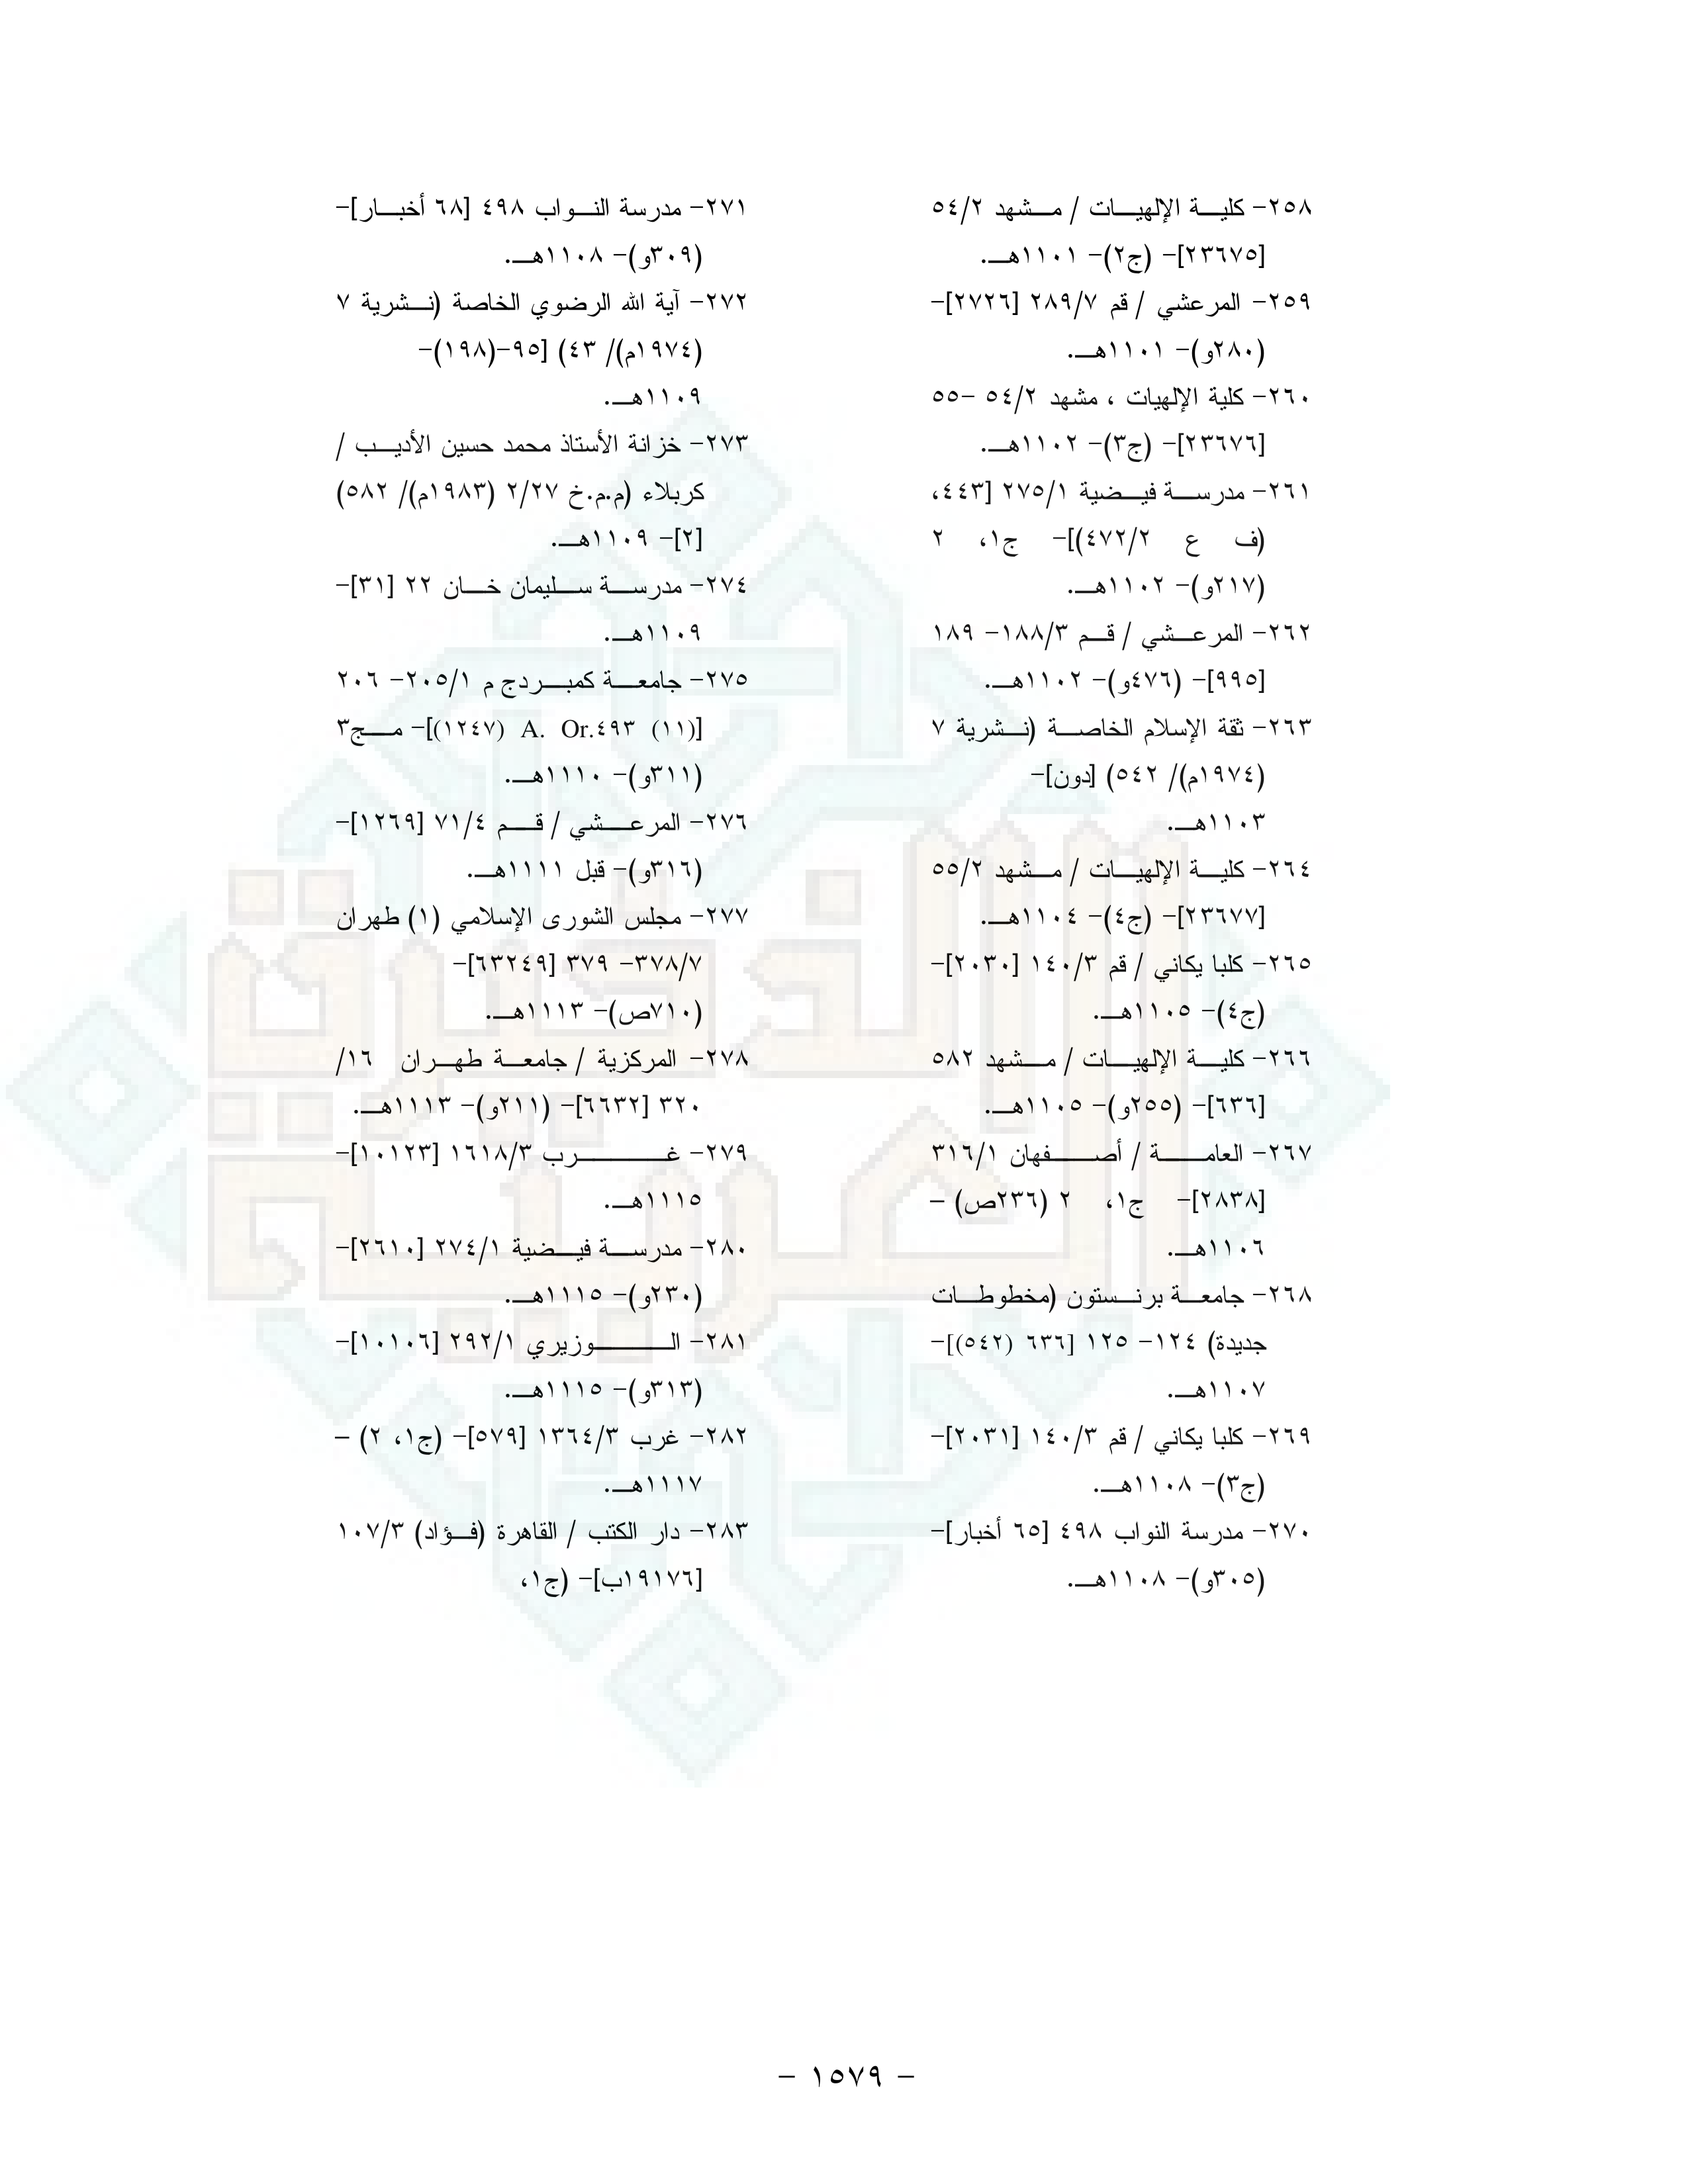 ٢٥٨- كلية الإلهيات / مشهد ٥٤/٢
[٢٣٦٧٥]- (ج٢)- ١١٠١هـ.
٢٥٩- المرعشي / قم ٢٨٩/٧ [٢٧٢٦]-
(٢٨٠و)- ١١٠١هـ.
٢٦٠- كلية الإلهيات ، مشهد ٥٤/٢ -٥٥
[٢٣٦٧٦]- (ج٣)- ١١٠٢هـ.
٢٦١- مدرسة فيضية ٢٧٥/١ [٤٤٣،
(ف ع ٤٧٢/٢)]- ج١، ٢
(٢١٧و)- ١١٠٢هـ.
٢٦٢- المرعشي / قم ١٨٨/٣- ١٨٩
[٩٩٥]- (٤٧٦و)- ١١٠٢هـ.
٢٦٣- ثقة الإسلام الخاصة (نشرية ٧
(١٩٧٤م)/ ٥٤٢) [دون]-
١١٠٣هـ.
٢٦٤- كلية الإلهيات / مشهد ٥٥/٢
[٢٣٦٧٧]- (ج٤)- ١١٠٤هـ.
٢٦٥- كلبا يكاني / قم ١٤٠/٣ [٢٠٣٠]-
(ج٤)- ١١٠٥هـ.
٢٦٦- كلية الإلهيات / مشهد ٥٨٢
[٦٣٦]- (٢٥٥و)- ١١٠٥هـ.
٢٦٧- العامة / أصفهان ٣١٦/١
[٢٨٣٨]- ج١، ٢ (٢٣٦ص) –
١١٠٦هـ.
٢٦٨- جامعة برنستون (مخطوطات
جديدة) ١٢٤- ١٢٥ [٦٣٦ (٥٤٢)]-
١١٠٧هـ.
٢٦٩- كلبا يكاني / قم ١٤٠/٣ [٢٠٣١]-
(ج٣)- ١١٠٨هـ.
٢٧٠- مدرسة النواب ٤٩٨ [٦٥ أخبار]-
(٣٠٥و)- ١١٠٨هـ.
٢٧١- مدرسة النواب ٤٩٨ [٦٨ أخبار]-
(٣٠٩و)- ١١٠٨هـ.
٢٧٢- آية الله الرضوي الخاصة (نشرية ٧
(١٩٧٤م)/ ٤٣) [٩٥-(١٩٨)-
١١٠٩هـ.
٢٧٣- خزانة الأستاذ محمد حسين الأديب /
كربلاء (م.م.خ ٢/٢٧ (١٩٨٣م)/ ٥٨٢)
[٢]- ١١٠٩هـ.
٢٧٤- مدرسة سليمان خان ٢٢ [٣١]-
١١٠٩هـ.
٢٧٥- جامعة كمبردج م ٢٠٥/١- ٢٠٦
[(١١) A. Or.٤٩٣ (١٢٤٧)]- مج٣
(٣١١و)- ١١١٠هـ.
٢٧٦- المرعشي / قم ٧١/٤ [١٢٦٩]-
(٣١٦و)- قبل ١١١١هـ.
٢٧٧- مجلس الشورى الإسلامي (١) طهران
٣٧٨/٧- ٣٧٩ [٦٣٢٤٩]-
(٧١٠ص)- ١١١٣هـ.
٢٧٨- المركزية / جامعة طهران ١٦/
٣٢٠ [٦٦٣٢]- (٢١١و)- ١١١٣هـ.
٢٧٩- غرب ١٦١٨/٣ [١٠١٢٣]-
١١١٥هـ.
٢٨٠- مدرسة فيضية ٢٧٤/١ [٢٦١٠]-
(٢٣٠و)- ١١١٥هـ.
٢٨١- الوزيري ٢٩٢/١ [١٠١٠٦]-
(٣١٣و)- ١١١٥هـ.
٢٨٢- غرب ١٣٦٤/٣ [٥٧٩]- (ج١، ٢) –
١١١٧هـ.
٢٨٣- دار الكتب / القاهرة (فؤاد) ١٠٧/٣
[١٩١٧٦ب]- (ج١،
- ١٥٧٩ -
الذخيرة
العربية